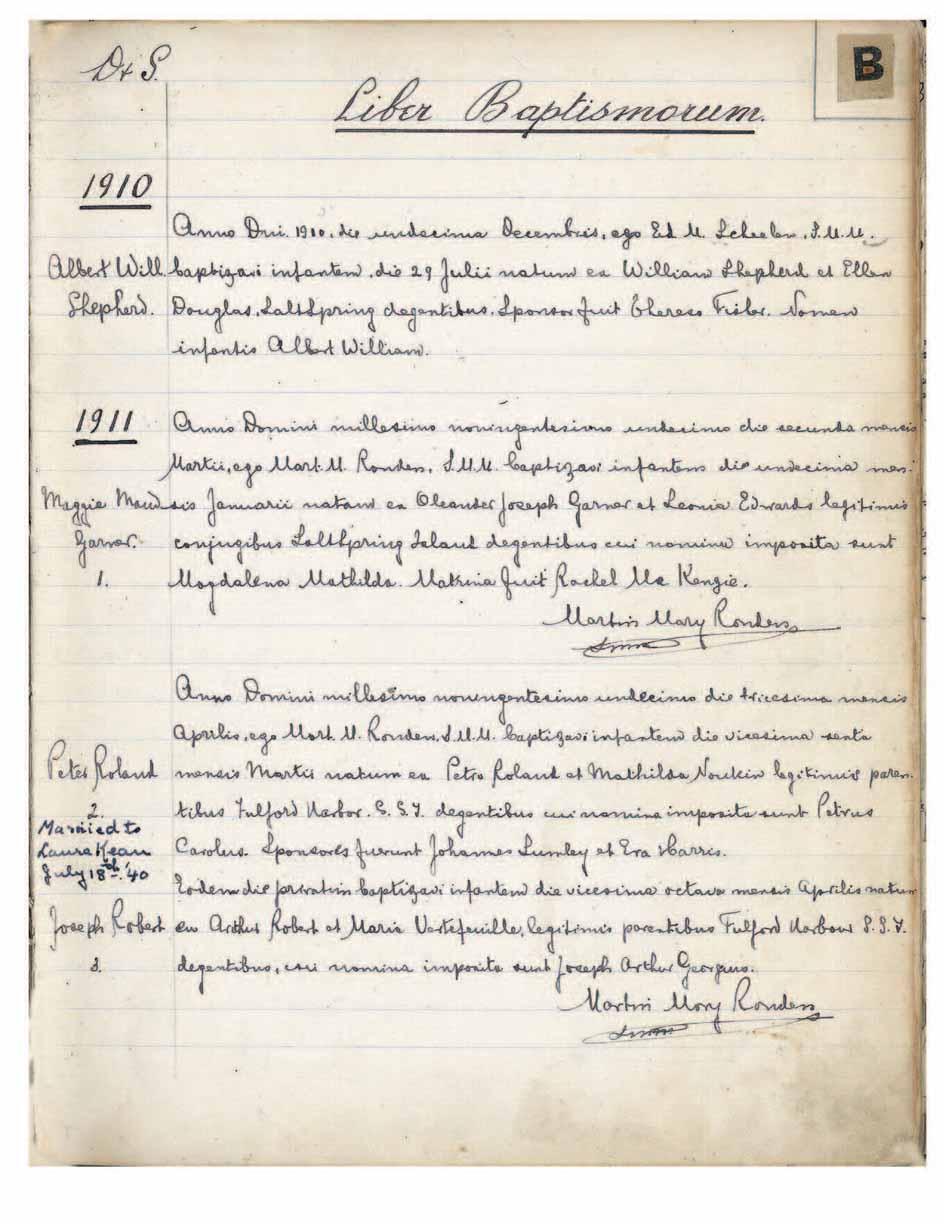 D & S.
B
Liber Baptismorum.
1910
Anno Dni. 1910, die undecima Decembris, ego Ed. M. Scheelen, S.M.M.
Albert Will. Shepherd.
baptizavi infantem, die 29 Julii natum ex William Shepherd et Ellen
Douglas, SaltSpring degentibus. Sponsor fuit Theresa Fisher. Nomen
infantis Albert William.
1911
Anno Domini millesimo noningentesimo undecimo die secunda mensis
Martii, ego Mart. M. Ronden, S.M.M. baptizavi infantem die undecima men-
Maggie Maud Garner. 1.
sis Januarii natam ex Oleander Joseph Garner et Leonia Edwards legitimis
conjugibus SaltSpring Island degentibus cui nomina imposita sunt
Magdalena Mathilda. Matrina fuit Rachel Mc Kenzie.
Martin Mary Ronden
smm
Anno Domini millesimo noningentesimo undecimo die tricesima mensis
Aprilis, ego Mart. M. Ronden, S.M.M. baptizavi infantem die vicesima sexta
Peter Roland
2.
Married to
Laura Kean
July 18th. '40
mensis Martis natum ex Petro Roland et Mathilda Noukin legitimis paren-
tibus Fulford Harbor. S.S.I. degentibus cui nomina imposita sunt Petrus
Carolus. Sponsores fuerunt Johannes Lumley et Eva Harris.
Eodem die privatim baptizavi infantem die vicesima octava mensis Aprilis natum
Joseph Robert
3.
ex Arthur Robert et Maria Vertefeuille, legitimis parentibus Fulford Harbour S.S.I.
degentibus, cui nomina imposita sunt Joseph Arthur Georgius.
Martin Mary Ronden
smm